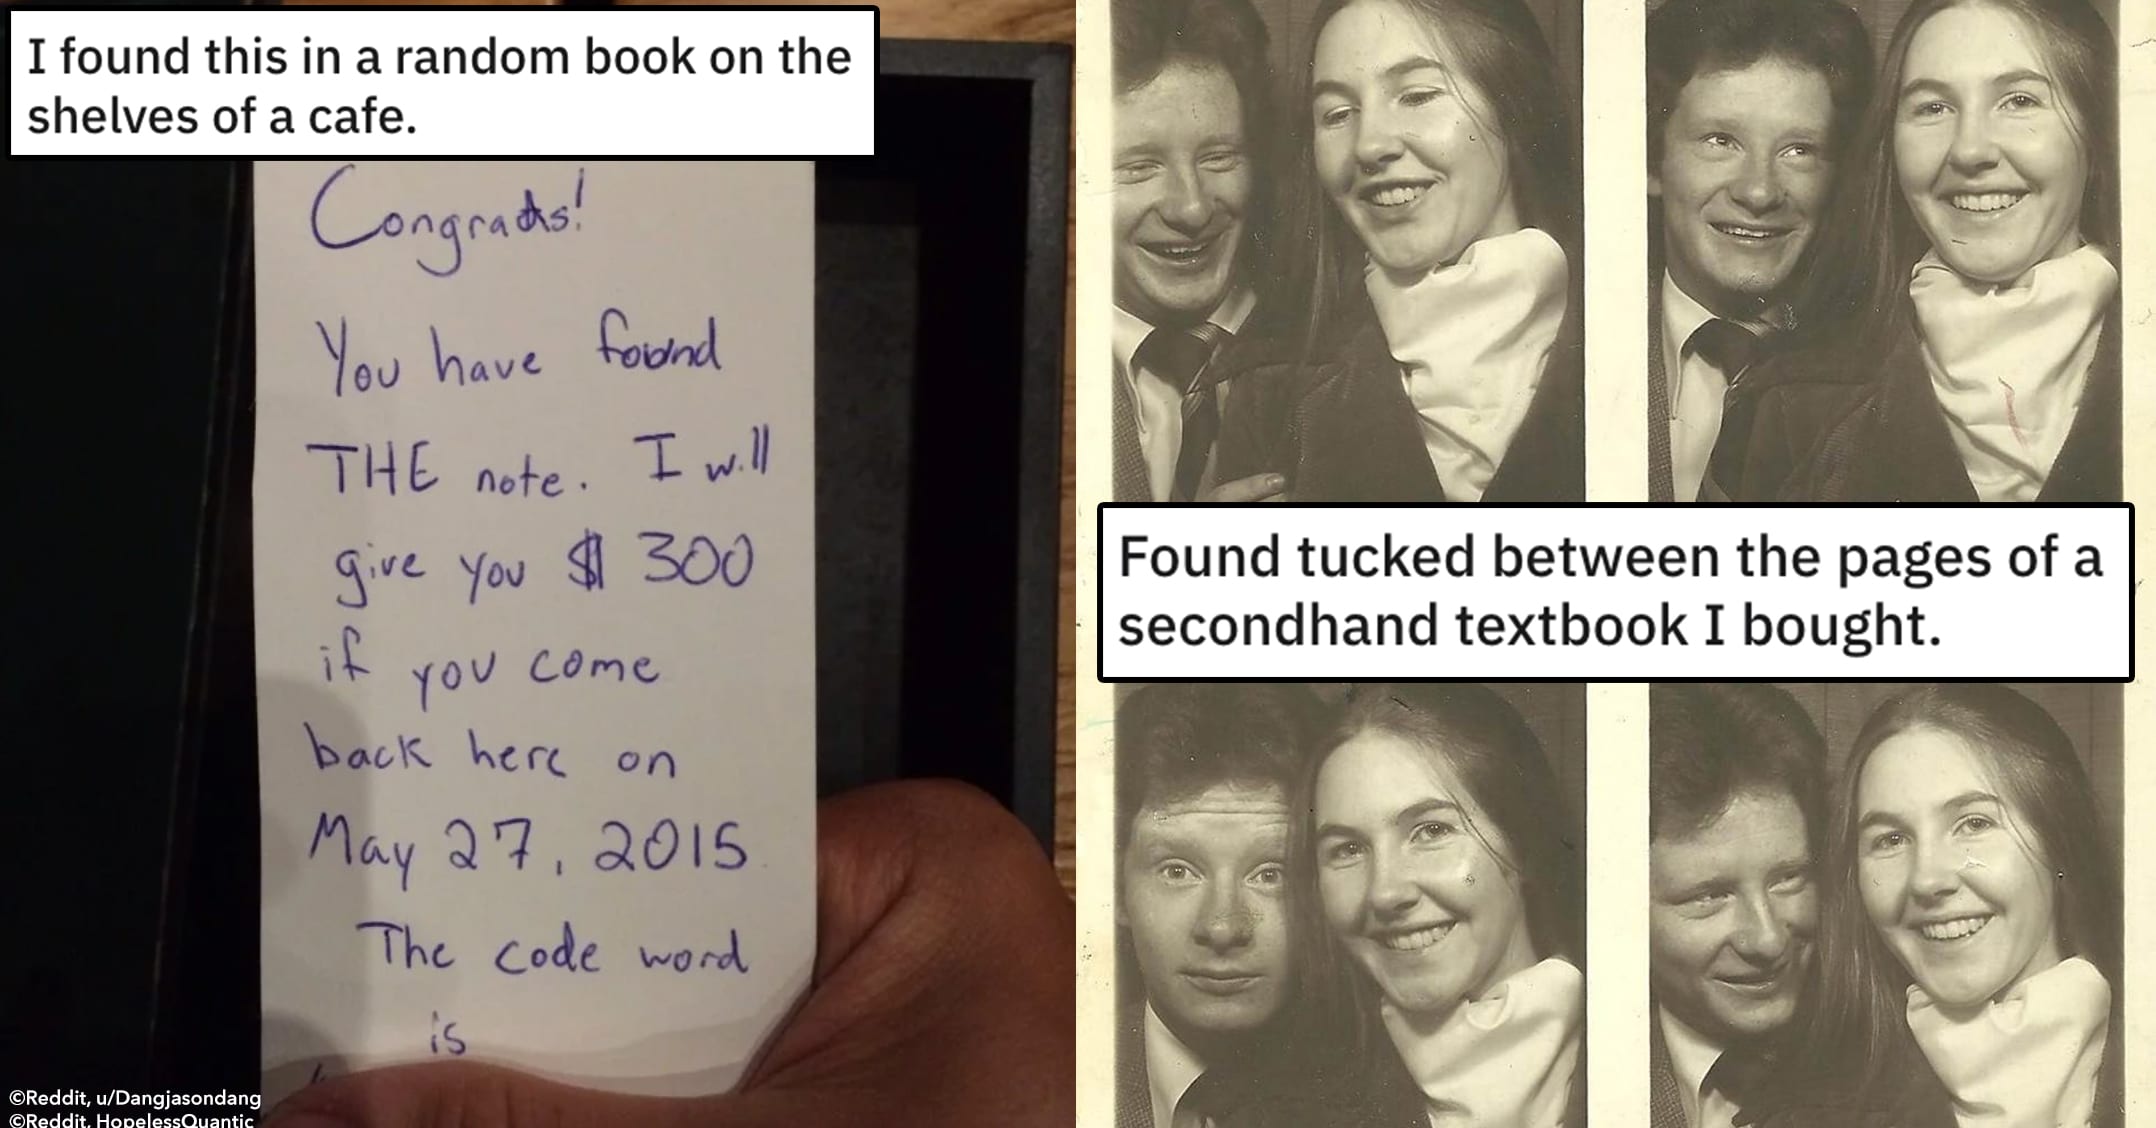 I found this in a random book on the
shelves of a cafe.
Congrats!
You have found
THE note. I will
give you $ 300
if you come
back here on
May 27, 2015
The code word
is
Found tucked between the pages of a
secondhand textbook I bought.
©Reddit, u/Dangjasondang
©Reddit, HopelessQuantic